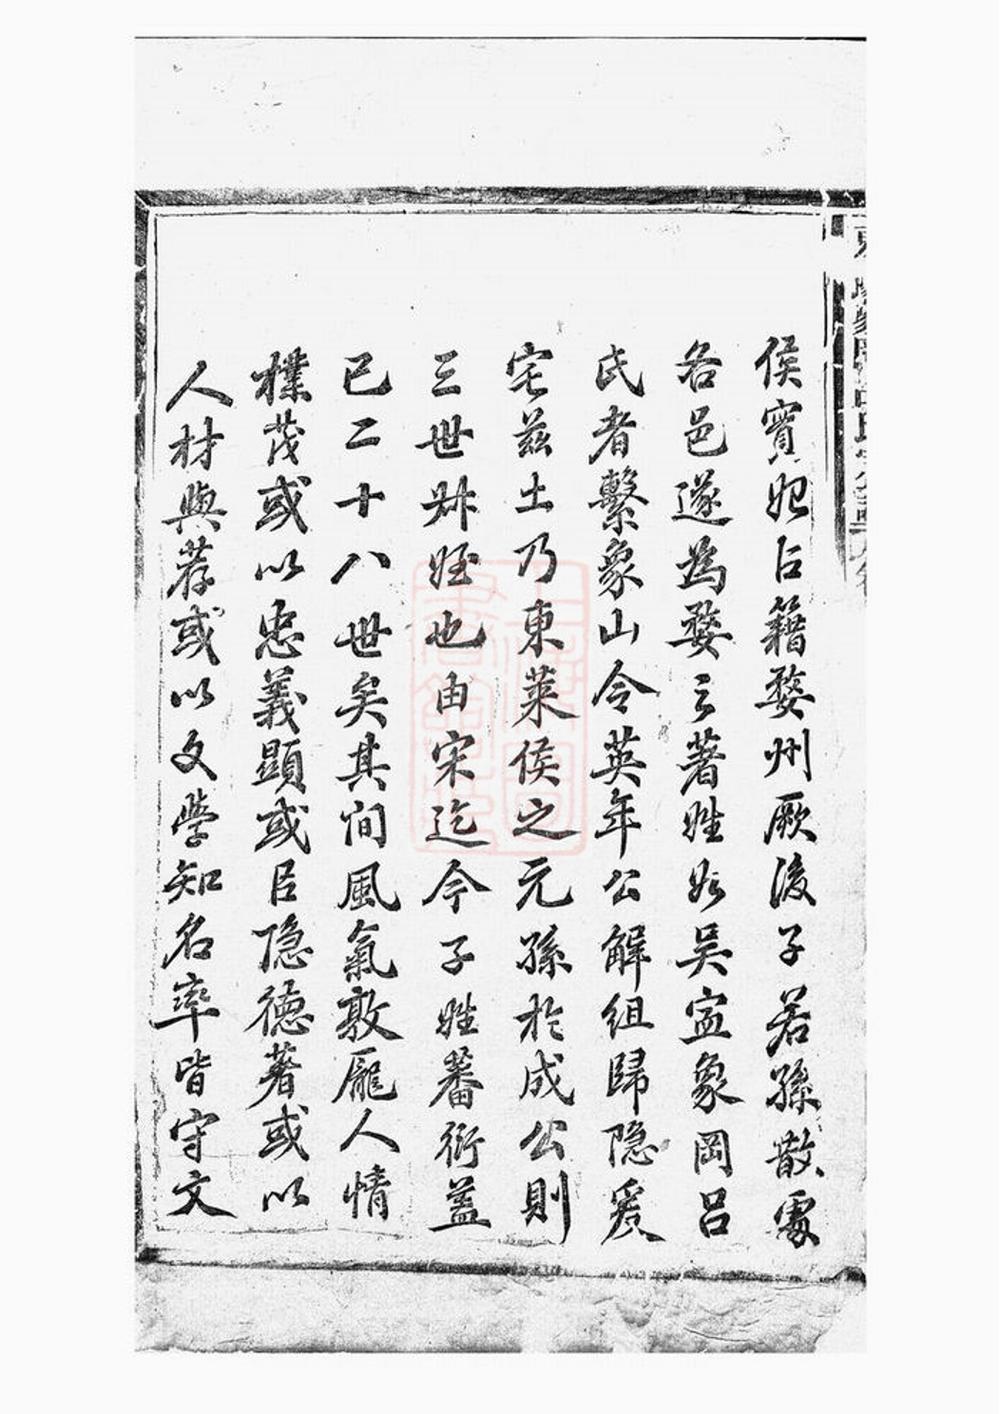 侯實始占籍婺州厥後子若孫散處
各邑遂為婺之著姓如吴宓象岡吕
氏者繫象山令英年公解組歸隐爰
宅兹土乃東萊侯之元孫於成公則
三世姪也由宋迄今子姓蕃衍蓋
已二十八世矣其间風氣敦龐人情
樸茂或以忠義顕或臣隐德著或以
人材與荐或以文學知名率皆守文